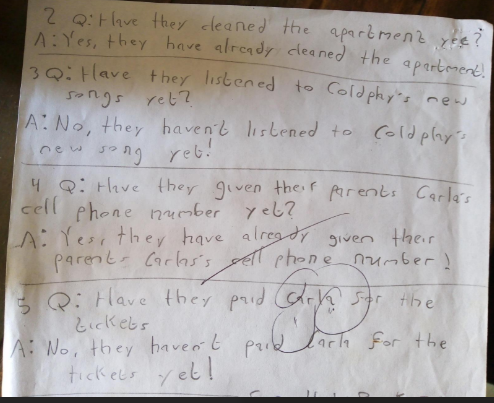 2 Q: Have they cleaned the apartment yet?
A: Yes, they have already cleaned the apartment.
3 Q: Have they listened to Coldphy's new
songs yet?
A: No, they haven't listened to Coldplay's
new song yet!
4 Q: Have they given their parents Carla's
cell phone number yet?
A: Yes, they have already given their
parents Carla's cell phone number!
5 Q: Have they paid Carla for the
tickets
A: No, they haven't paid Carla for the
tickets yet!